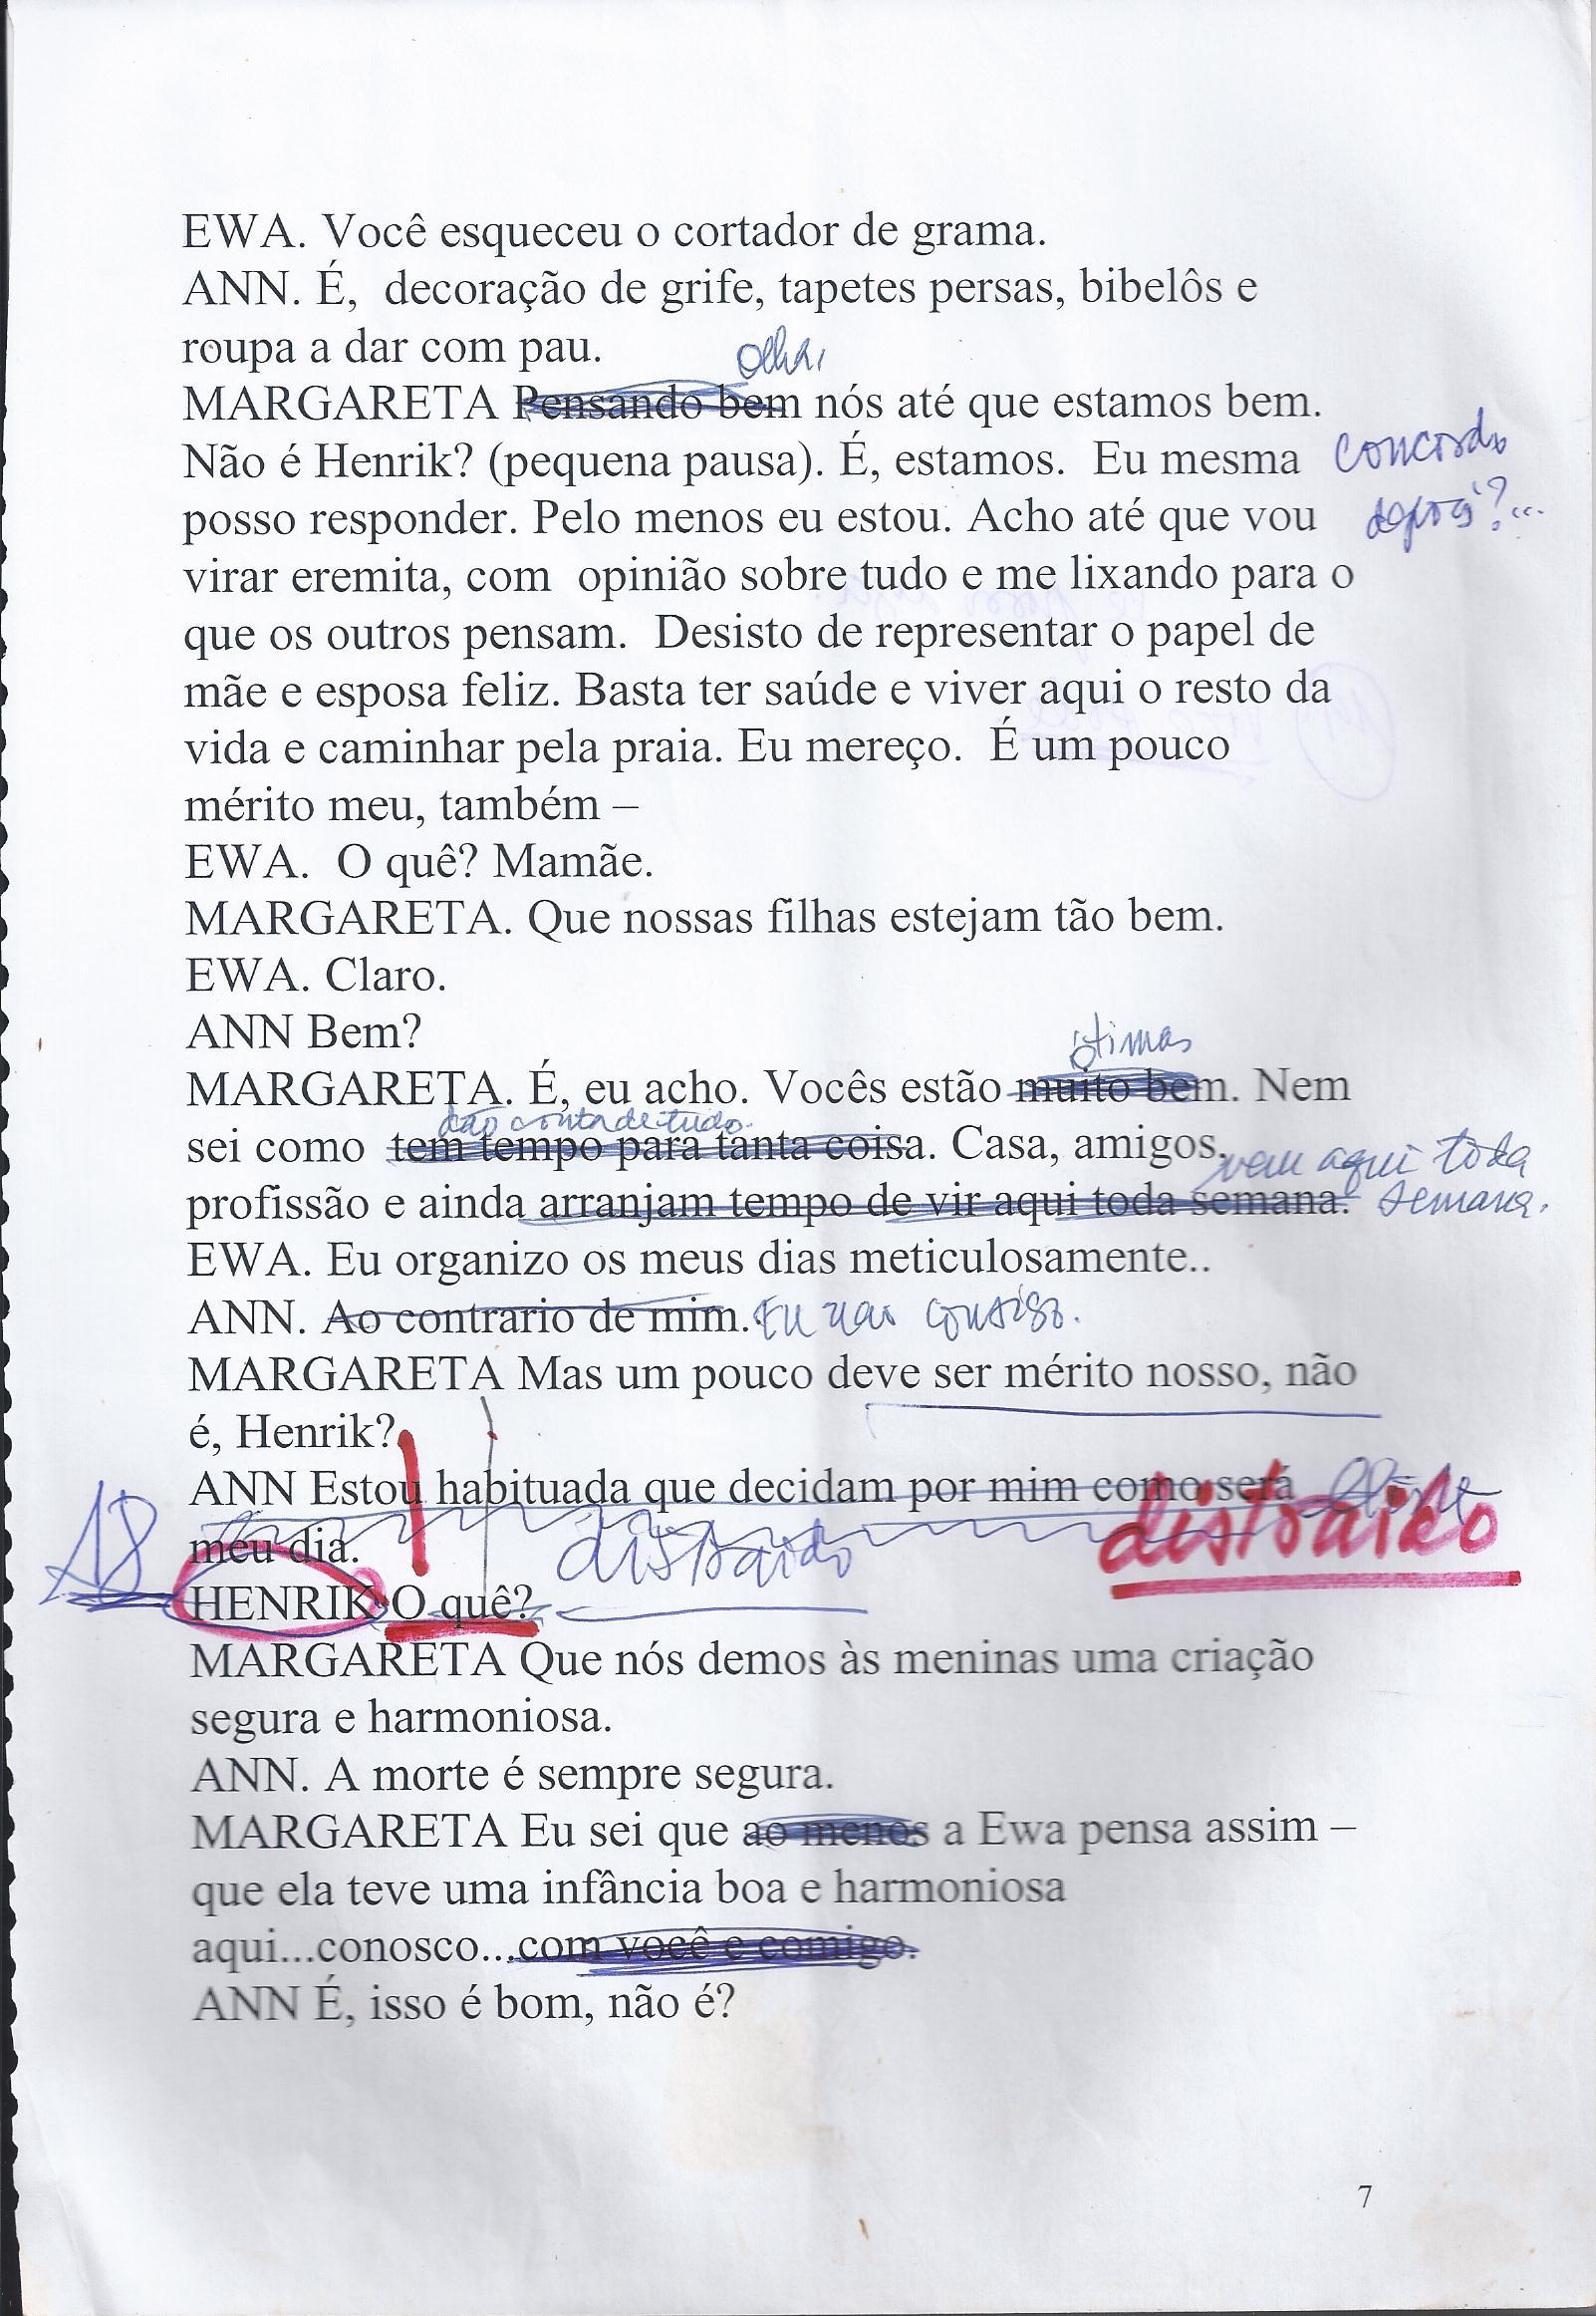 EWA. Você esqueceu o cortador de grama.
ANN. É,  decoração de grife, tapetes persas, bibelôs e
roupa a dar com pau.
olha,
MARGARETA Pensando bem nós até que estamos bem.
Não é Henrik? (pequena pausa). É, estamos.  Eu mesma concordo
posso responder. Pelo menos eu estou. Acho até que vou depois?...
virar eremita, com  opinião sobre tudo e me lixando para o
que os outros pensam.  Desisto de representar o papel de
mãe e esposa feliz. Basta ter saúde e viver aqui o resto da
vida e caminhar pela praia. Eu mereço.  É um pouco
mérito meu, também –
EWA.  O quê? Mamãe.
MARGARETA. Que nossas filhas estejam tão bem.
EWA. Claro.
ANN Bem?
ótimas
MARGARETA. É, eu acho. Vocês estão muito bem. Nem
dão conta de tudo.
sei como  tem tempo para tanta coisa. Casa, amigos,
vem aqui toda
profissão e ainda arranjam tempo de vir aqui toda semana. semana.
EWA. Eu organizo os meus dias meticulosamente..
ANN. Ao contrario de mim. Eu não consigo.
MARGARETA Mas um pouco deve ser mérito nosso, não
é, Henrik?
ANN Estou habituada que decidam por mim como será
meu dia. distraido distraido
HENRIK O quê?
MARGARETA Que nós demos às meninas uma criação
segura e harmoniosa.
ANN. A morte é sempre segura.
MARGARETA Eu sei que ao menos a Ewa pensa assim –
que ela teve uma infância boa e harmoniosa
aqui...conosco...com você e comigo.
ANN É, isso é bom, não é?
7